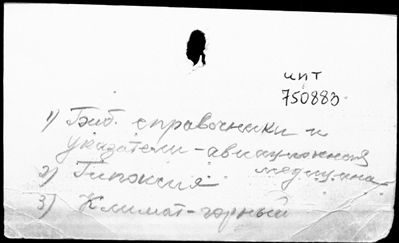 ипт
750883
1) Библ. справочники и
указатели - авиационная
медицина
2) Гипоксия
3) Климат - горный